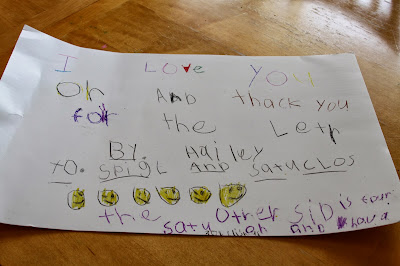 I Love You
Oh And thack you
for the Letr
By. Hailey
to. SPIGL AND SatuCLOS
the Other SiD is four
satu and have